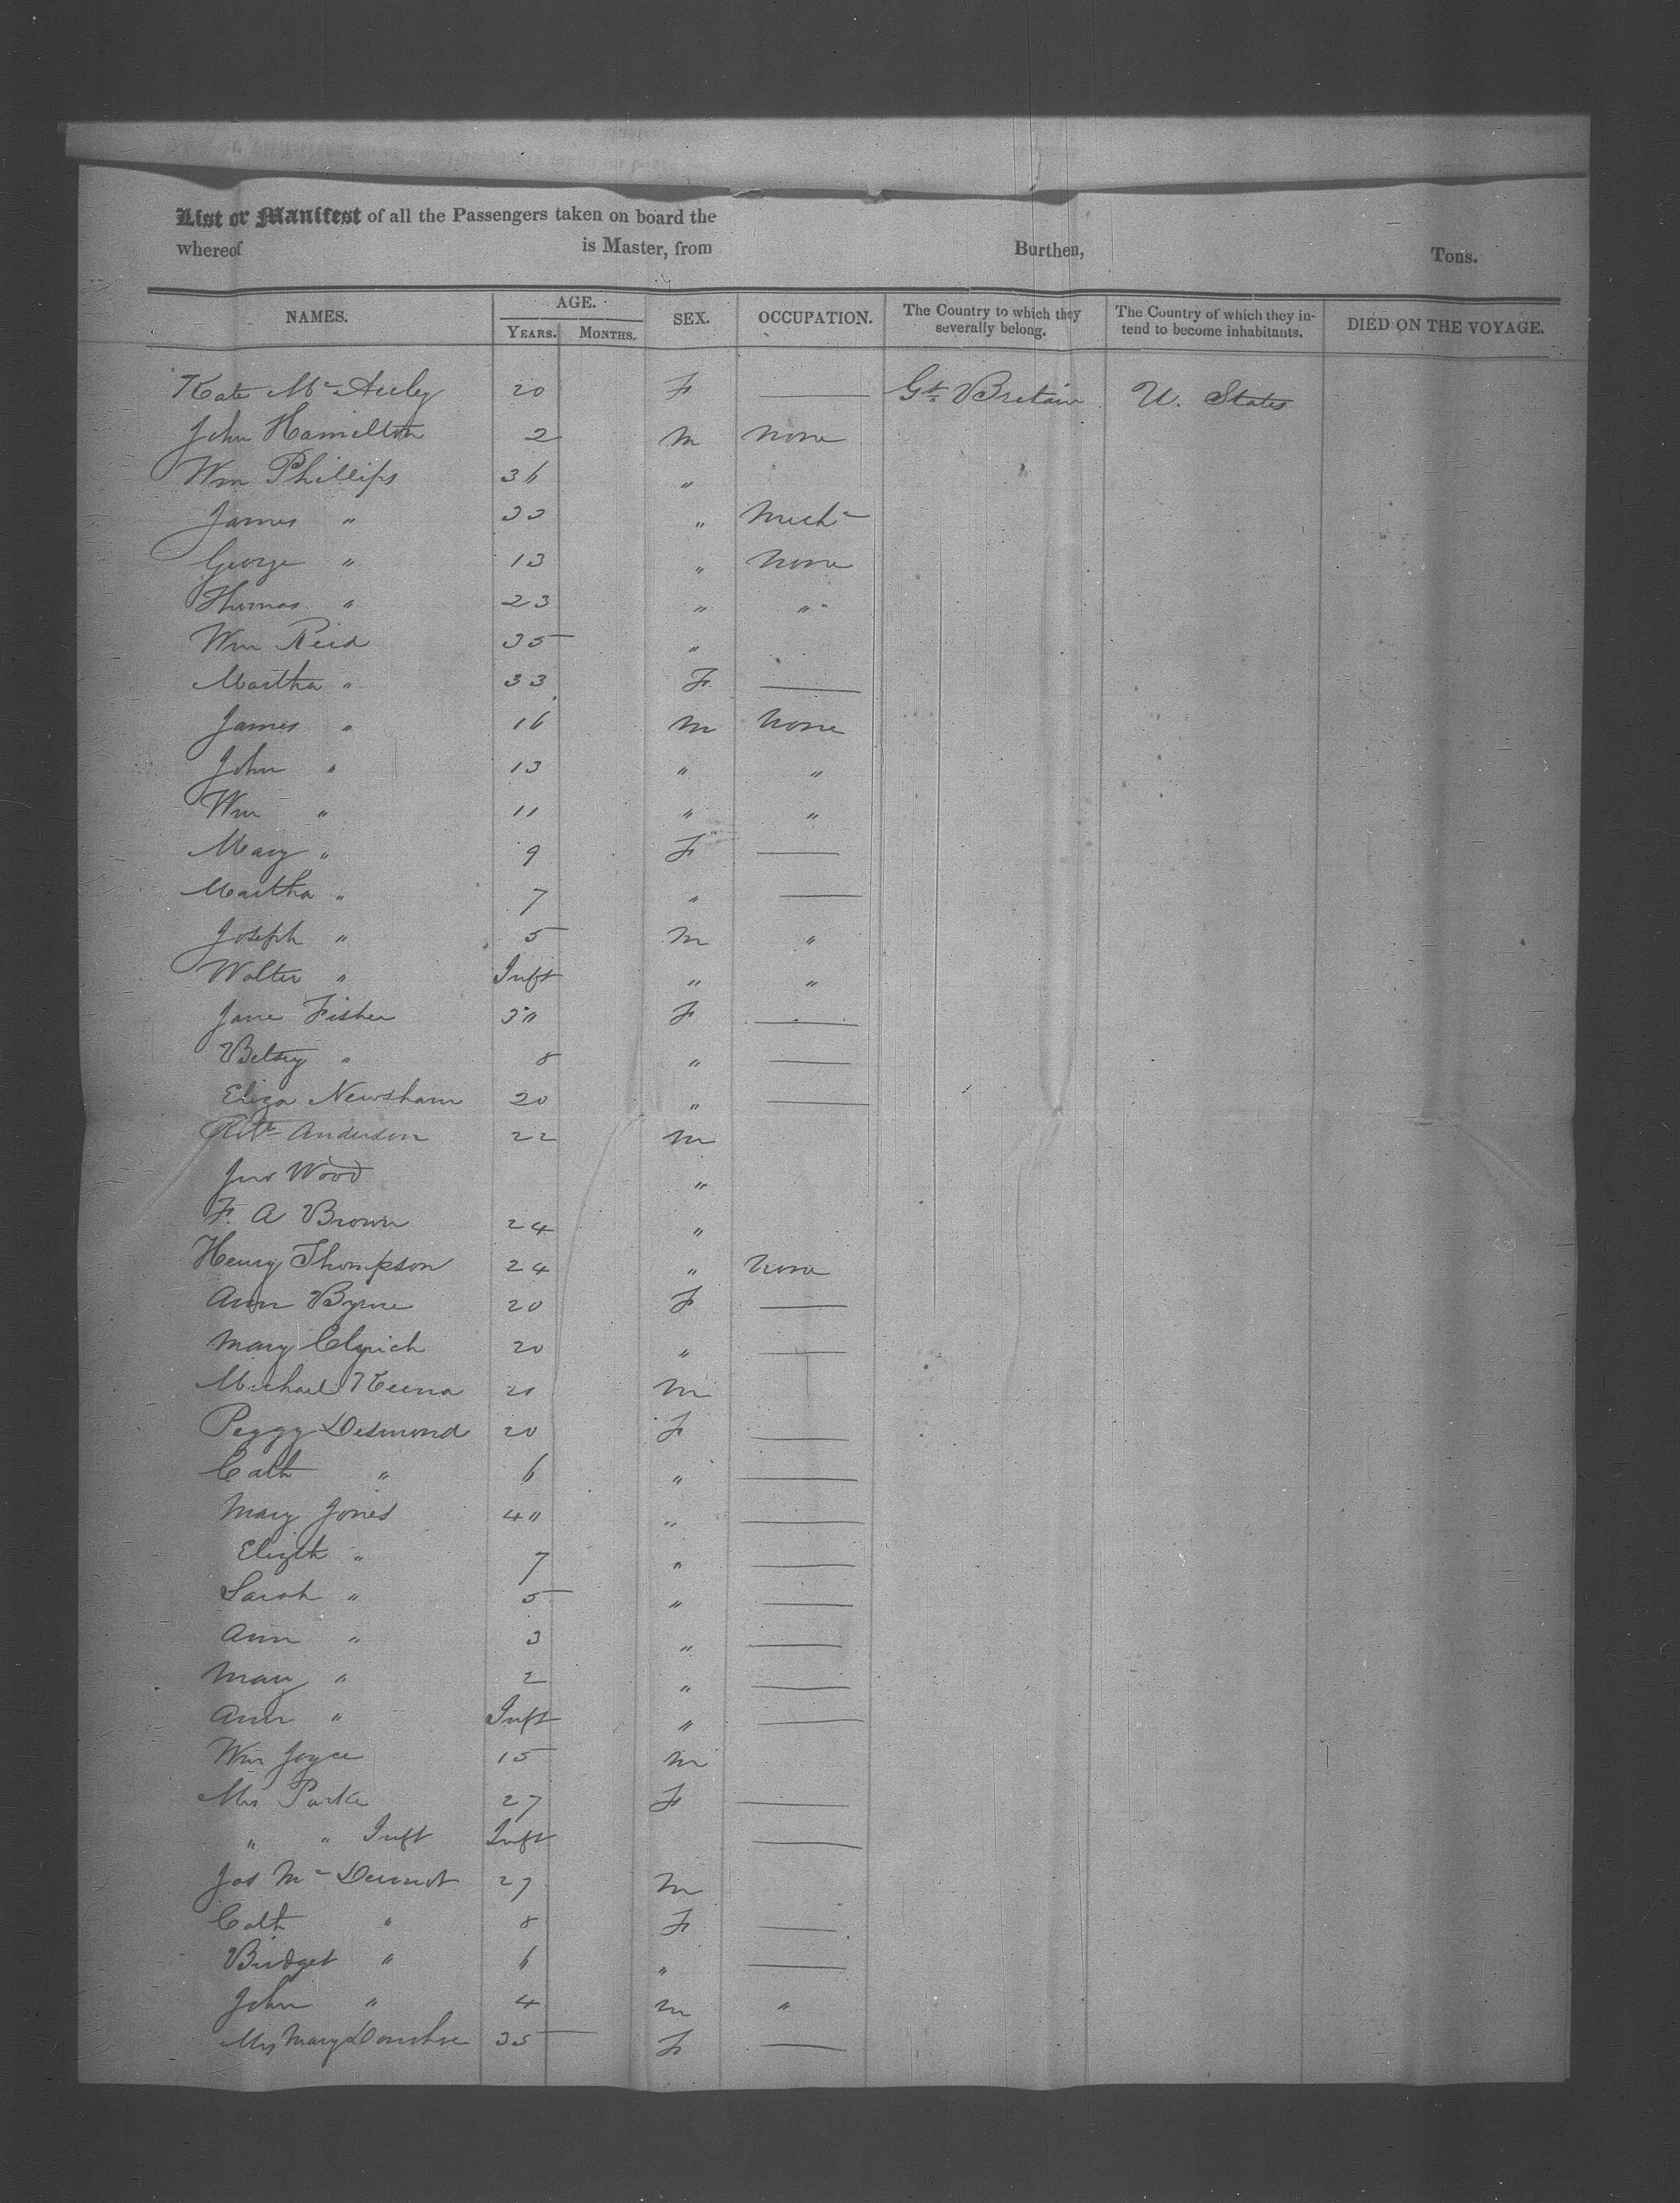 List or Manifest of all the Passengers taken on board the
whereof is Master, from Burthen, Tons.
NAMES. AGE. YEARS. MONTHS. SEX. OCCUPATION. The Country to which they severally belong. The Country of which they intend to become inhabitants. DIED ON THE VOYAGE.
Kate Mc Auley 20 F — Gt. Britain U. States
John Hamilton 2 m none
Wm Phillips 36 "
James " 33 " Mech
George " 13 " none
Thomas " 23 " "
Wm Reid 35 "
Martha " 33 F —
James " 16 m none
John " 13 " "
Wm " 11 " "
Mary " 9 F —
Martha " 7 " —
Joseph " 5 m "
Walter " Inft " "
Jane Fisher 30 F —
Betsy " 8 " —
Eliza Newsham 20 " —
Robt Anderson 22 m
Jno Wood "
F. A Brown 24 "
Henry Thompson 24 " none
Ann Byrne 20 F —
Mary 20 " —
Michael m
Peggy Desmond 20 F —
Cath " 6 " —
Mary Jones 40 " —
Elizth " 7 " —
Sarah " 5 " —
Ann " 3 " —
Mary " 2 " —
Ann " Inft " —
Wm Joyce 15 m
Mrs Parke 27 F —
" " Inft Inft —
Jas Mc Dermot 27 m
Cath " 8 F —
Bridget " 6 " —
John " 4 m "
Mrs Mary Donohoe 35 F —